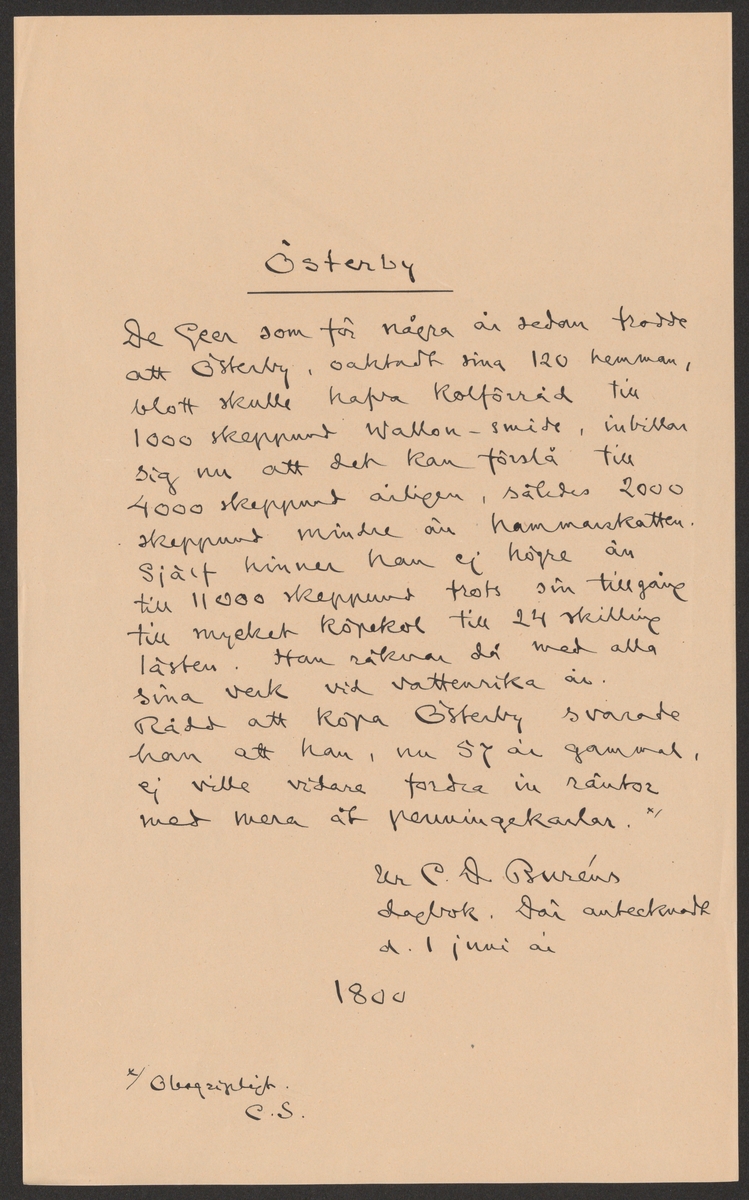 Österby
De Geer som för några år sedan trodde
att Österby, oaktadt sina 120 hemman,
blott skulle hafva kolförråd till
1000 skeppund Wallon-smide, inbillar
sig nu att det kan förslå till
4000 skeppund årligen, således 2000
skeppund mindre än hammarskatten.
Själf hinner han ej högre än
till 11000 skeppund trots sin tillgång
till mycket köpekol till 24 skilling
lästen. Han räknar då med alla
sina verk vid vattenrika år.
Rådd att köpa Österby svarade
han att han, nu 57 år gammal,
ej ville vidare fordra in räntor
med mera åt penningekarlar. x/
Ur C. D. Buréns
dagbok. Där antecknadt
d. 1 juni år
1800
x/ Obegripligt.
C.S.